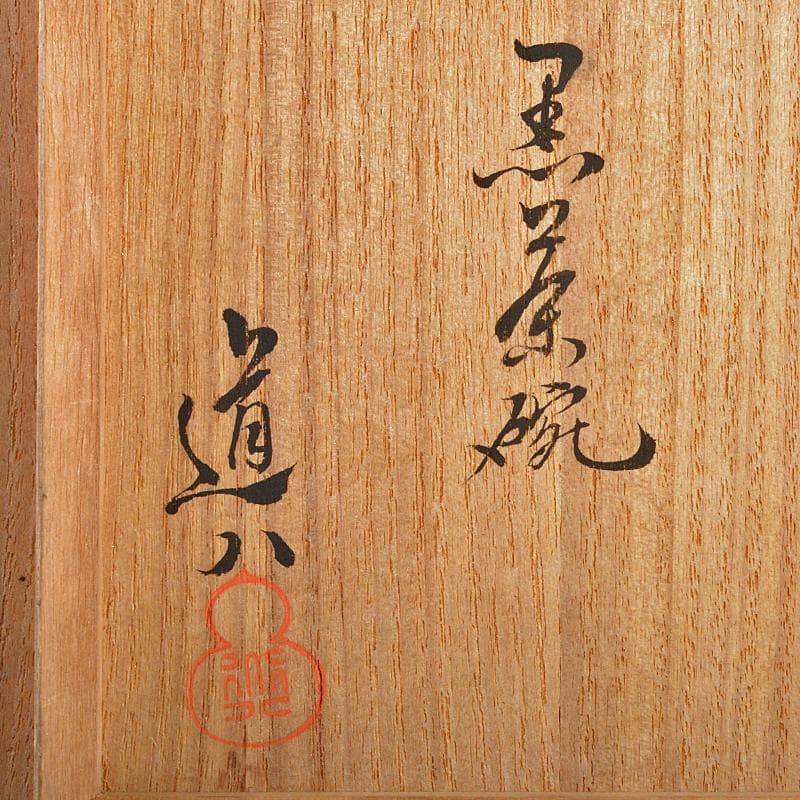 黒茶碗
道八